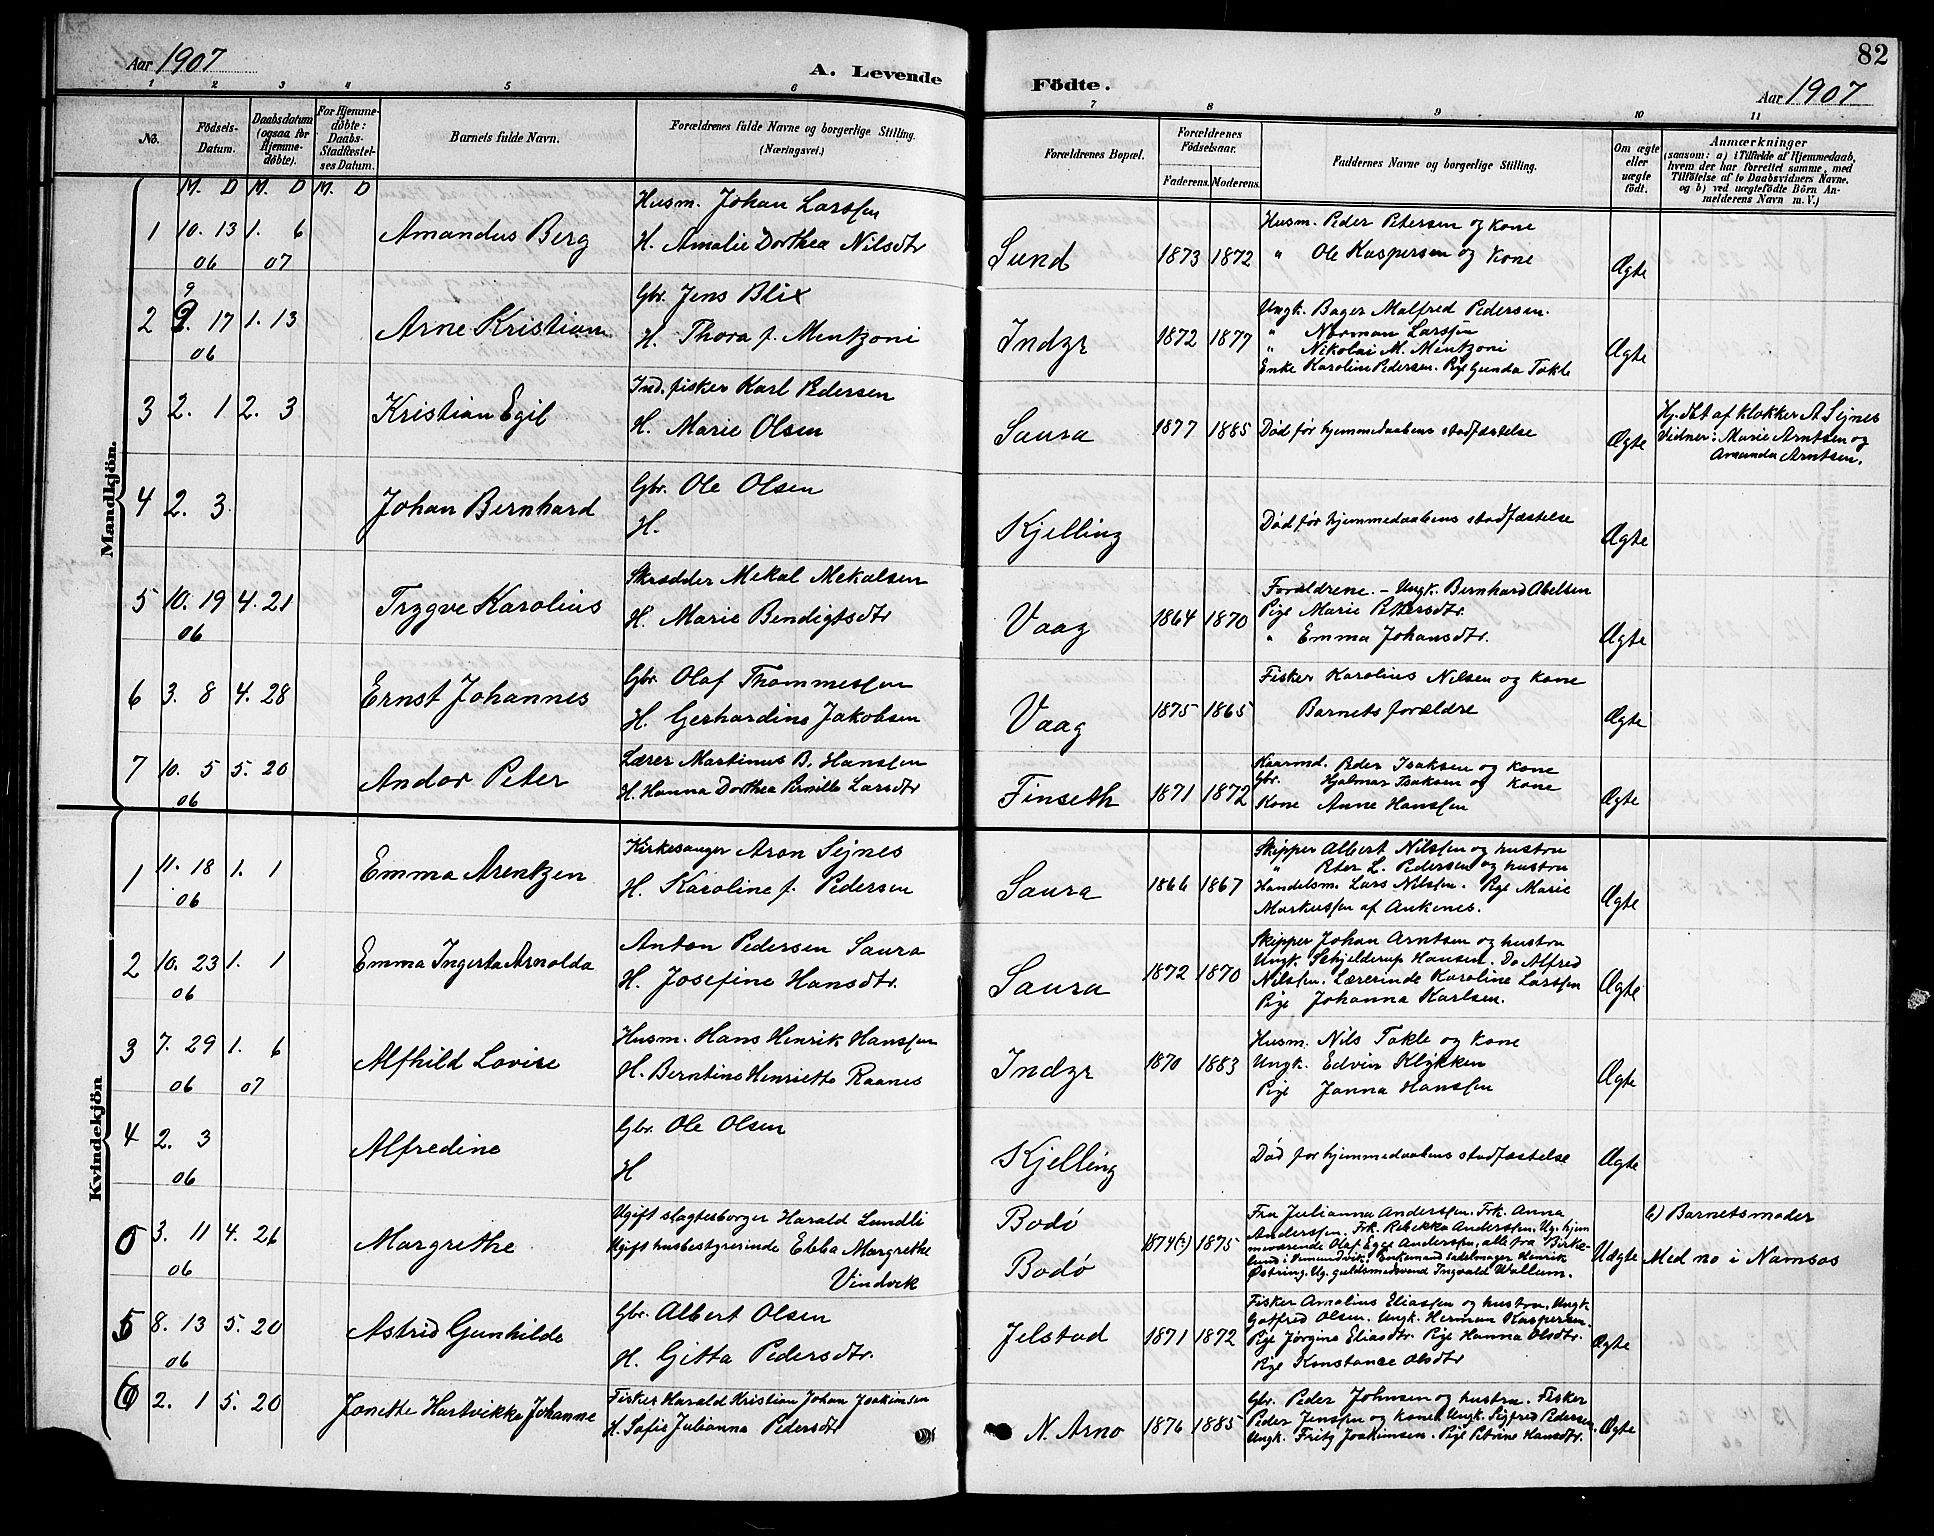 Aar 1907
A. Levende
Födte.
82
Aar 1907
1 2 3 4 5 6 7 8 9 10 11
No.
Födsels-Datum.
Daabsdatum (ogsaa for Hjemmedöbte).
For Hjemmedöbte: Daabs-Stadfæstelses Datum.
Barnets fulde Navn.
Forældrenes fulde Navne og borgerlige Stilling. (Næringsvei.)
Forældrenes Bopæl.
Forældrenes Födselsaar.
Faderens. Moderens.
Faddernes Navne og borgerlige Stilling.
Om ægte eller uægte födt.
Anmærkninger
(saasom: a) i Tilfælde af Hjemmedaab, hvem der har forrettet samme, med Tilföielse af to Daabsvidners Navne. og b) ved uægtefödte Börn Anmelderens Navn m. V.)
M. D M. D M. D
Mandkjön.
1 10. 13 06 1. 6 07 Amandus Berg
Husm. Johan Larssen
H. Amalie Dorthea Nilsdtr
Sund 1873 1872
Husm. Peder Petersen og kone
" Ole Kaspersen og kone
Ægte
2 9. 17 06 1. 13 Arne Kristian
Gbr. Jens Blix
H. Thora f. Mentzoni
Indyr 1872 1877
Ungk. Bager Malfred Pedersen.
" Norman Larssen
" Nikolai M. Mentzoni
Enke Karoline Pedersen. Pige Gunda Tokle
Ægte
3 2. 1 2. 3 Kristian Egil
Ind. fisker Karl Pedersen
H. Marie Olsen
Saura 1877 1885
Død før hjemmedaabens stadfæstelse
Ægte
Hj. dbt af klokker A Sejnes
Vidner: Marie Arntsen og
Amanda Arntsen.
4 2. 3. Johan Bernhard
Gbr. Ole Olsen
H.
Kjelling
Død før hjemmedaabens stadfæstelse
Ægte
5 10. 19 06 4. 21 Trygve Karolius
Skrædder Mekal Mekalsen
H. Marie Bendigtsdtr
Vaag 1864 1870
Forældrene. - Ungk. Bernhard Abelsen
Pige Marie Pettersdtr.
" Emma Johansdtr.
Ægte
6 3. 8 4. 28 Ernst Johannes
Gbr. Olaf Thommessen
H. Gerhardine Jakobsen
Vaag 1875 1865
Fisker Karolius Nilsen og kone
Barnets forældre
Ægte
7 10. 5 06 5. 20 Andor Peter
Lærer Martinus B. Hanssen
H. Hanna Dorthea Pernille Larsdtr
Finseth 1871 1872
Kaarmd. Peder Isaksen og kone
Gbr. Hjalmar Isaksen og kone
Kone Anne Hanssen
Ægte
Kvindekjön
1 11. 18 06 1. 1 Emma Arentzen
Kirkesanger Aron Sejnes
H. Karoline f. Pedersen
Saura 1866 1867
Skipper Albert Nilssen og hustru
" Peter L. Pedersen og hustru
Handelsm. Lars Nilssen. Pige Marie
Markussen af Ankenes.
Ægte
2 10. 23 06 1. 1 Emma Ingerta Arnolda
Anton Pedersen Saura
H. Josefine Hansdtr.
Saura 1872 1870
Skipper Johan Arntsen og hustru
Ungk. Schjelderup Hansen. Do Alfred
Nilssen. Lærerinde Karoline Larssen
Pige Johanna Karlsen.
Ægte
3 7. 29 06 1. 6 07 Alfhild Lovise
Husm. Hans Henrik Hanssen
H. Berntine Henriette Raanes
Indyr 1870 1883
Husm. Nils Tokle og kone
Ungk. Edvin Klykken
Pige Janna Hanssen
Ægte
4 2. 3 06 Alfredine
Gbr. Ole Olsen
H
Kjelling
Død før hjemmedaabens stadfæstelse
Ægte
0 3. 11 06 4. 26 Margrethe
Ugift slagtesborger Harald Lundli
Ugift husbestyrerinde Ebba Margrethe
Vindvik
Bodø
Bodø
1874(?) 1875
Fru Julianna Anderssen. Frk. Anna
Anderssen. Frk. Rebekka Anderssen. Ug. hjem
meværende Olaf Egge Anderssen, alle fra Birke-
lund i Vemundvik. Enkemand Sadelmager Henrik
Østring. Ug. guldsmedsvend Ingvald Wallum.
Uægte
b) Barnetsmoder
Med no i Namsos
5 8. 13 06 5. 20 Astrid Gunhilde
Gbr. Albert Olsen
H. Gitta Pedersdtr.
Jelstad 1871 1872
Fisker Arnolius Eliassen og hustru. Ungk
Gotfred Olsen. Ungk. Herman Kaspersen.
Pige Jørgine Eliasdtr. Pige Hanna Olsdtr.
Pige Konstance Olsdtr
Ægte
6 2. 1 5. 20 Jonette Hartvikka Johanne
Fisker Harald Kristian Johan Joakimsen
H. Sofie Julianna Pedersdtr
N. Arnø 1876 1885
Gbr. Peder Johnsen og hustru. Fisker
Peder Jenssen og kone. Ungk. Sigfred Pedersen.
Ungk. Fritz Joakimsen. Pige Petrine Hansdtr.
Ægte